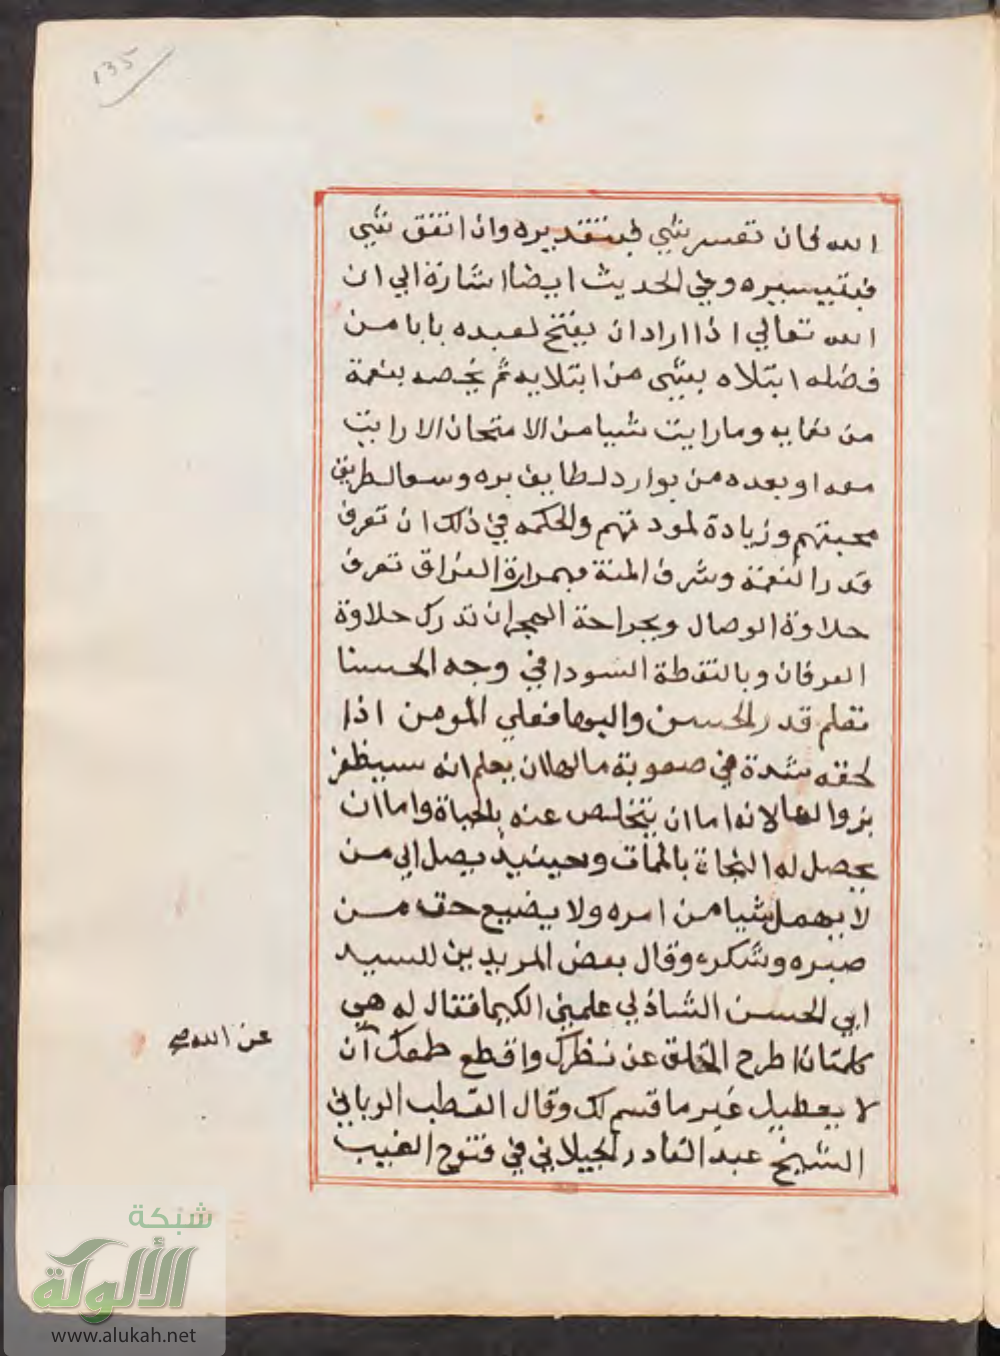 135
الله فان تعسر شي فبتقديره وان اتفق شي
فبتيسيره وفي الحديث ايضا اشارة الي ان
الله تعالي اذا اراد ان يفتح لعبده بابا من
فضله ابتلاه بشي من ابتلايه ثم يخصه بنعمة
من نعمايه وما رايت شيا من الامتحان الا رايت
معه او بعده من بوارد لطايف بره وسعا لطريق
محبتهم وزيادة لمودتهم والحكمه في ذلك ان تعرف
قدر النعمة وشرف المنة فبمرارة الفراق تعرف
حلاوة الوصال وبجراحة الهجران تدرك حلاوة
العرفان وبالنقطة السودا في وجه الحسنا
تعلم قدر الحسن والبها فعلي المومن اذا
لحقه شدة في صعوبة مالها ان يعلم انه سيظفر
بزوالها لانه اما ان يتخلص عنه بالحياة واما ان
يحصل له النجاة بالممات وحينيذ يصل الي من
لا يهمل شيا من امره ولا يضيع حق من
صبره وشكره وقال بعض المريدين للسيد
ابي الحسن الشاذلي علمني الكيميا فقال له هي
كلمتان اطرح الخلق عن نظرك واقطع طمعك أن
لا يعطيك غير ما قسم لك وقال القطب الرباني
الشيخ عبد القادر الجيلاني في فتوح الغيب
عن الله صح
شبكة
الألوكة
www.alukah.net